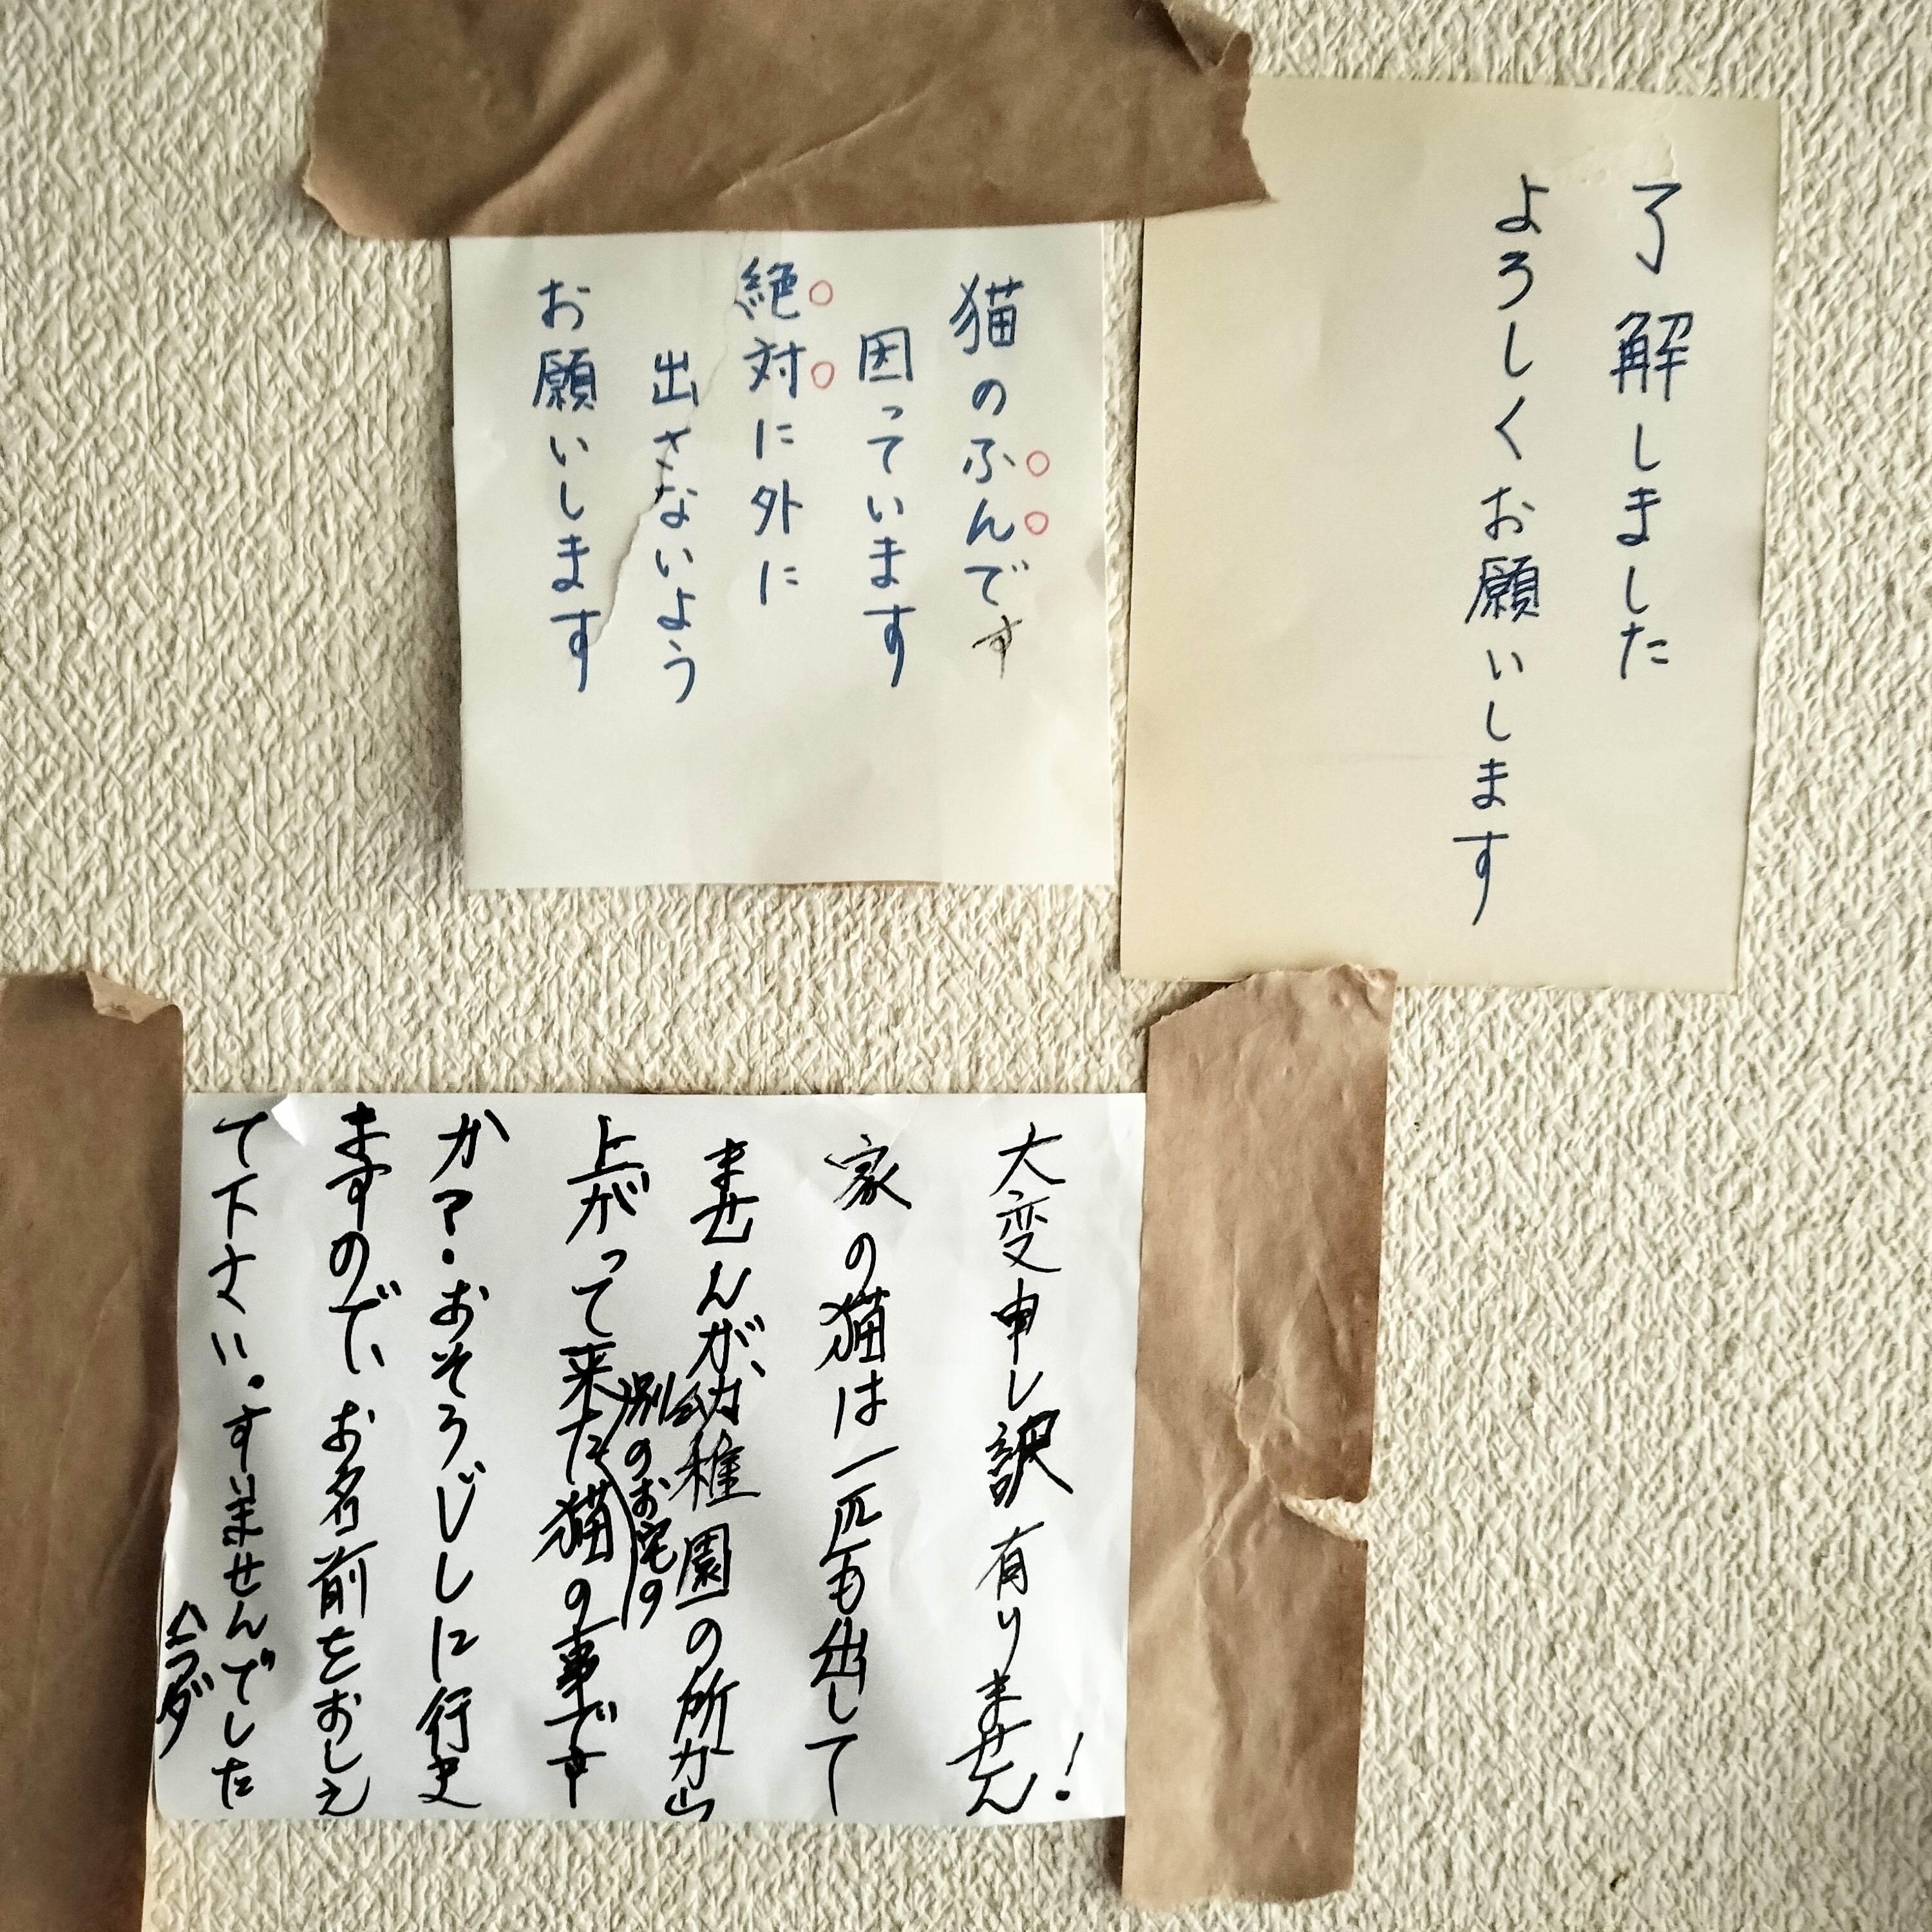 了解しました
よろしくお願いします
猫のふんです
困っています
絶対に外に
出さないよう
お願いします
大変申し訳有りません!
家の猫は一匹も出して
ませんが、幼稚園の所から
別のお宅の
上がって来た猫の事です
か?・おそうじしに行き
ますので、お名前をおしえ
て下さい。すいませんでした